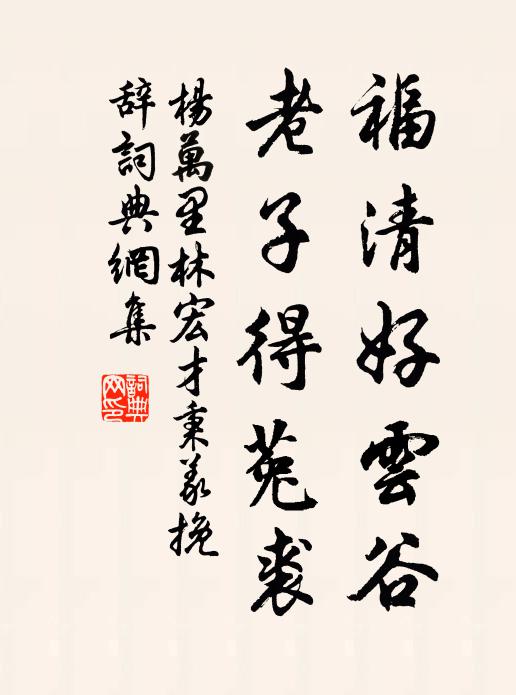 福清好雲谷
老子得菟裘
楊萬里林宏才秉義挽
辭詞典網集
詞典網印